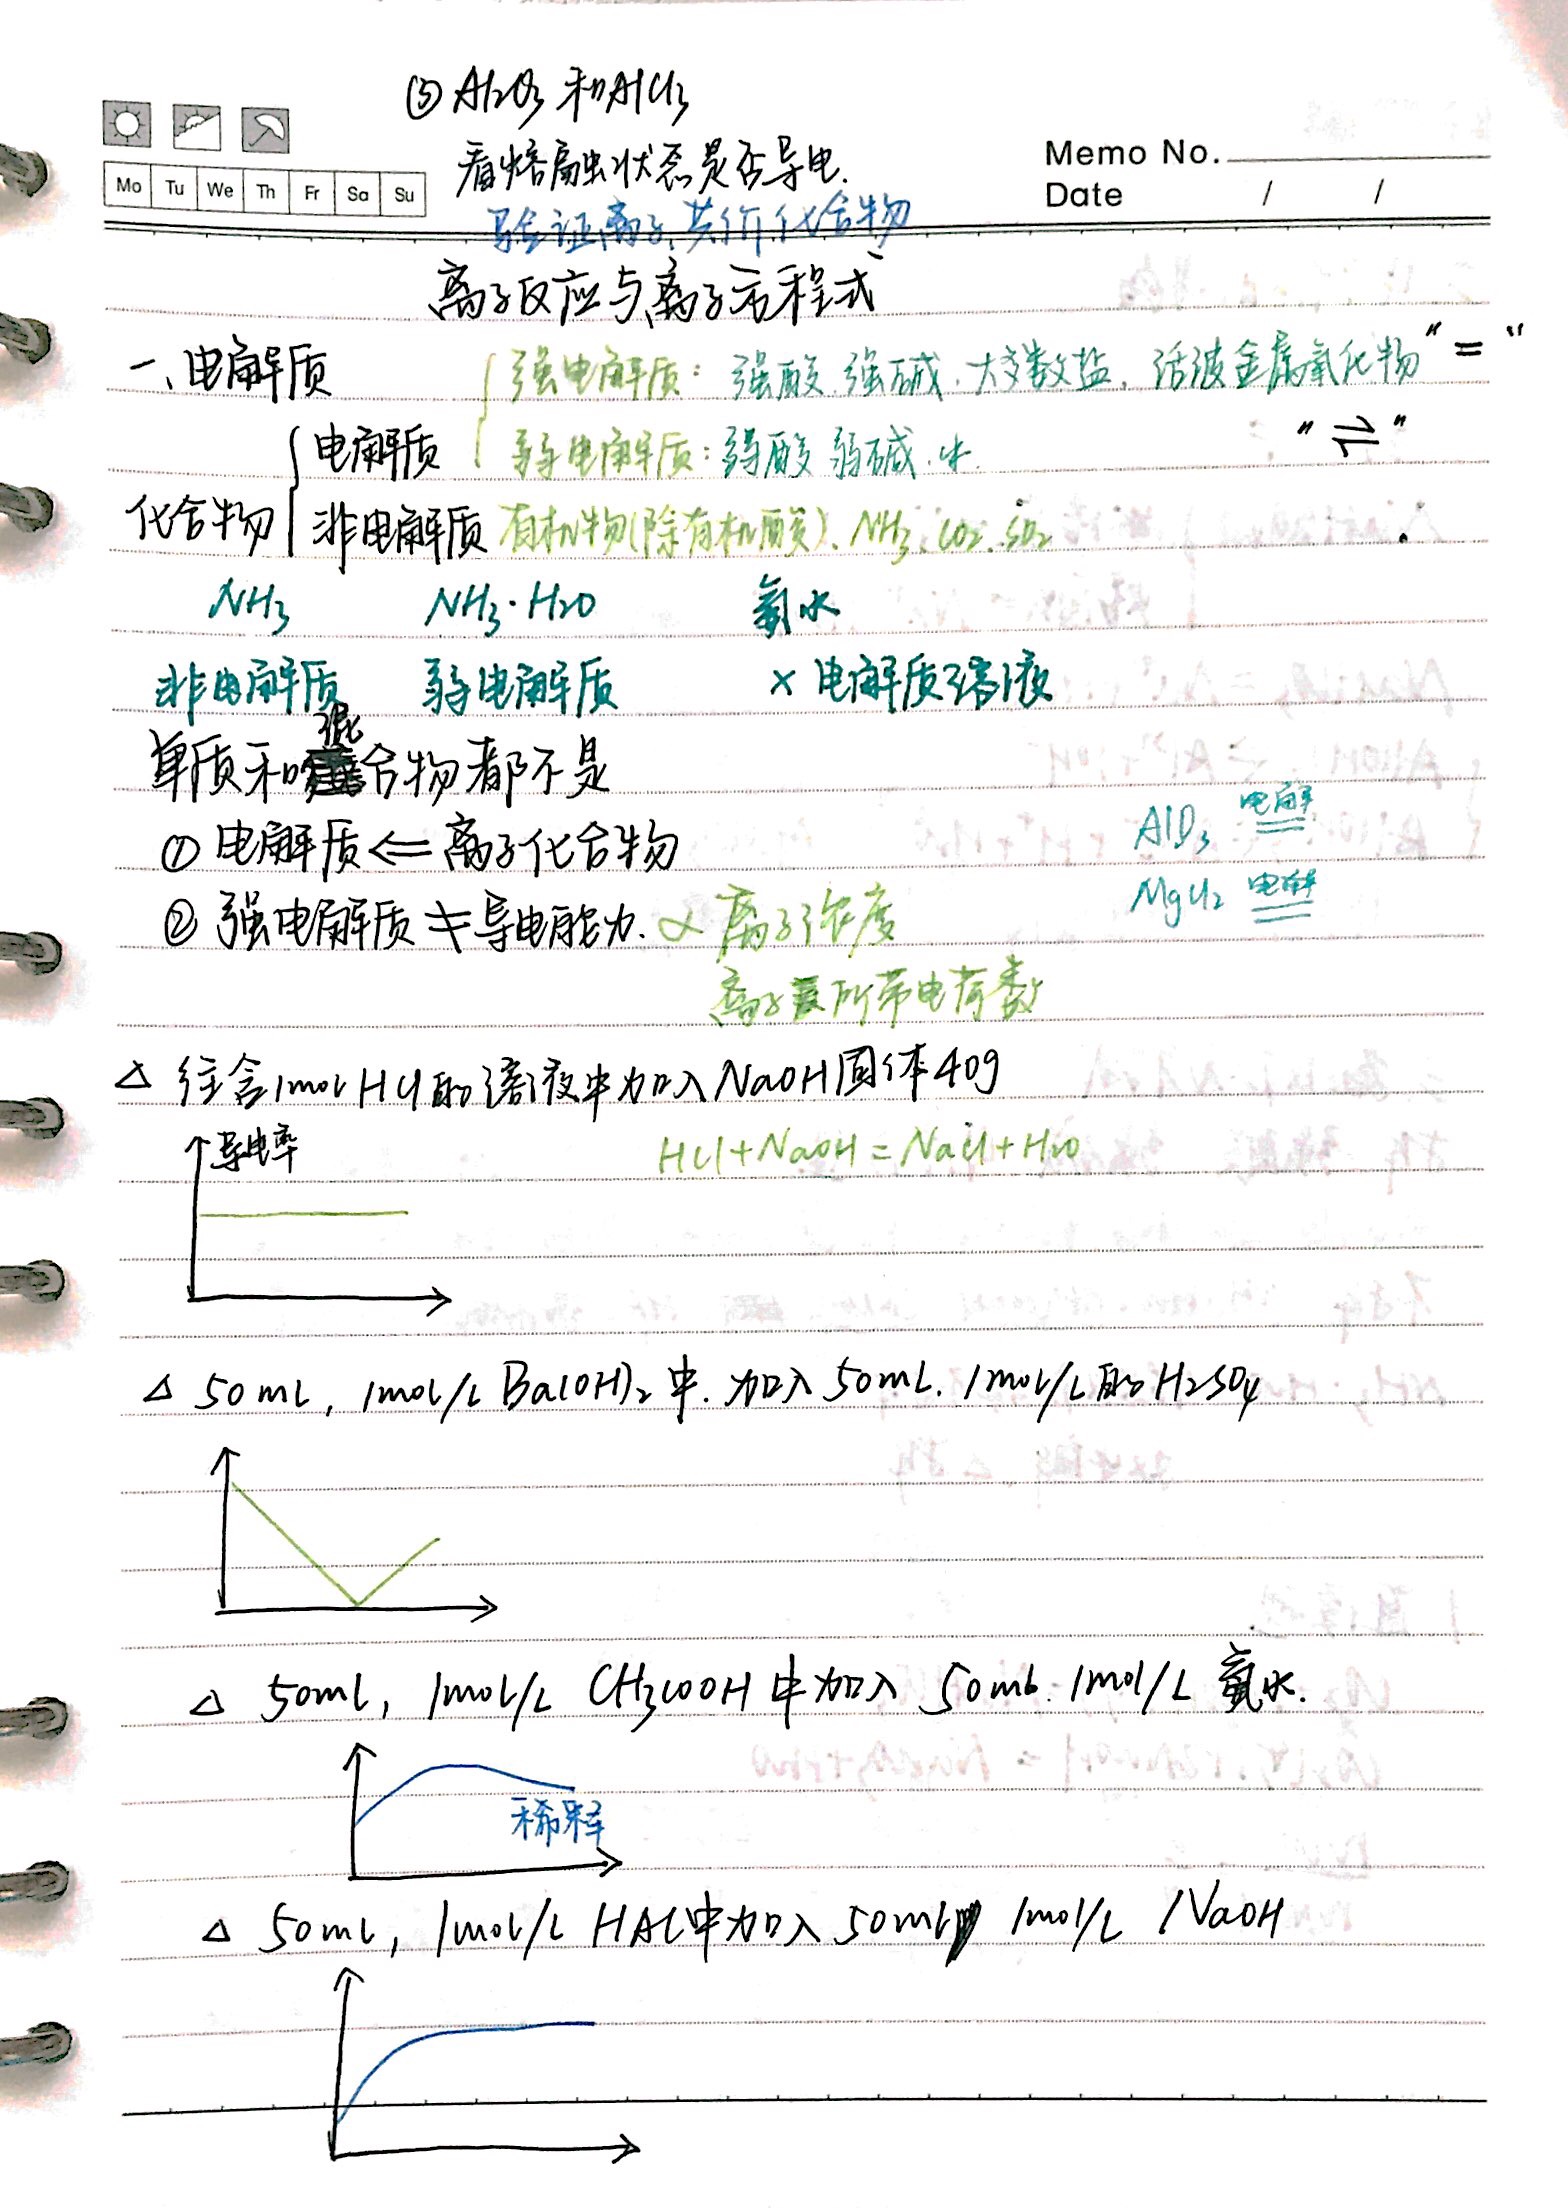 ③ Al₂O₃ 和AlCl₃
看熔融状态是否导电.
验证离子、共价化合物
Mo Tu We Th Fr Sa Su
Memo No.
Date / /
离子反应与离子方程式
一、电解质
强电解质：强酸.强碱.大多数盐.活泼金属氧化物 "="
电解质 弱电解质：弱酸 弱碱.水. "⇌"
化合物 非电解质 有机物(除有机酸).NH₃.CO₂.SO₂
NH₃ NH₃·H₂O 氨水
非电解质 弱电解质 × 电解质溶液
单质和混合物都不是
① 电解质⇐离子化合物 AlO₃ 电解
② 强电解质≠导电能力.∝ 离子浓度 MgCl₂ 电解
离子所带电荷数
△ 往含1molHCl的溶液中加入NaOH固体40g
导电率 HCl+NaOH=NaCl+H₂O
△ 50mL, 1mol/L Ba(OH)₂中.加入50mL.1mol/L的H₂SO₄
△ 50mL, 1mol/L CH₃COOH中加入 50mL.1mol/L 氨水.
稀释
△ 50mL, 1mol/L HAc中加入50mL 1mol/L NaOH